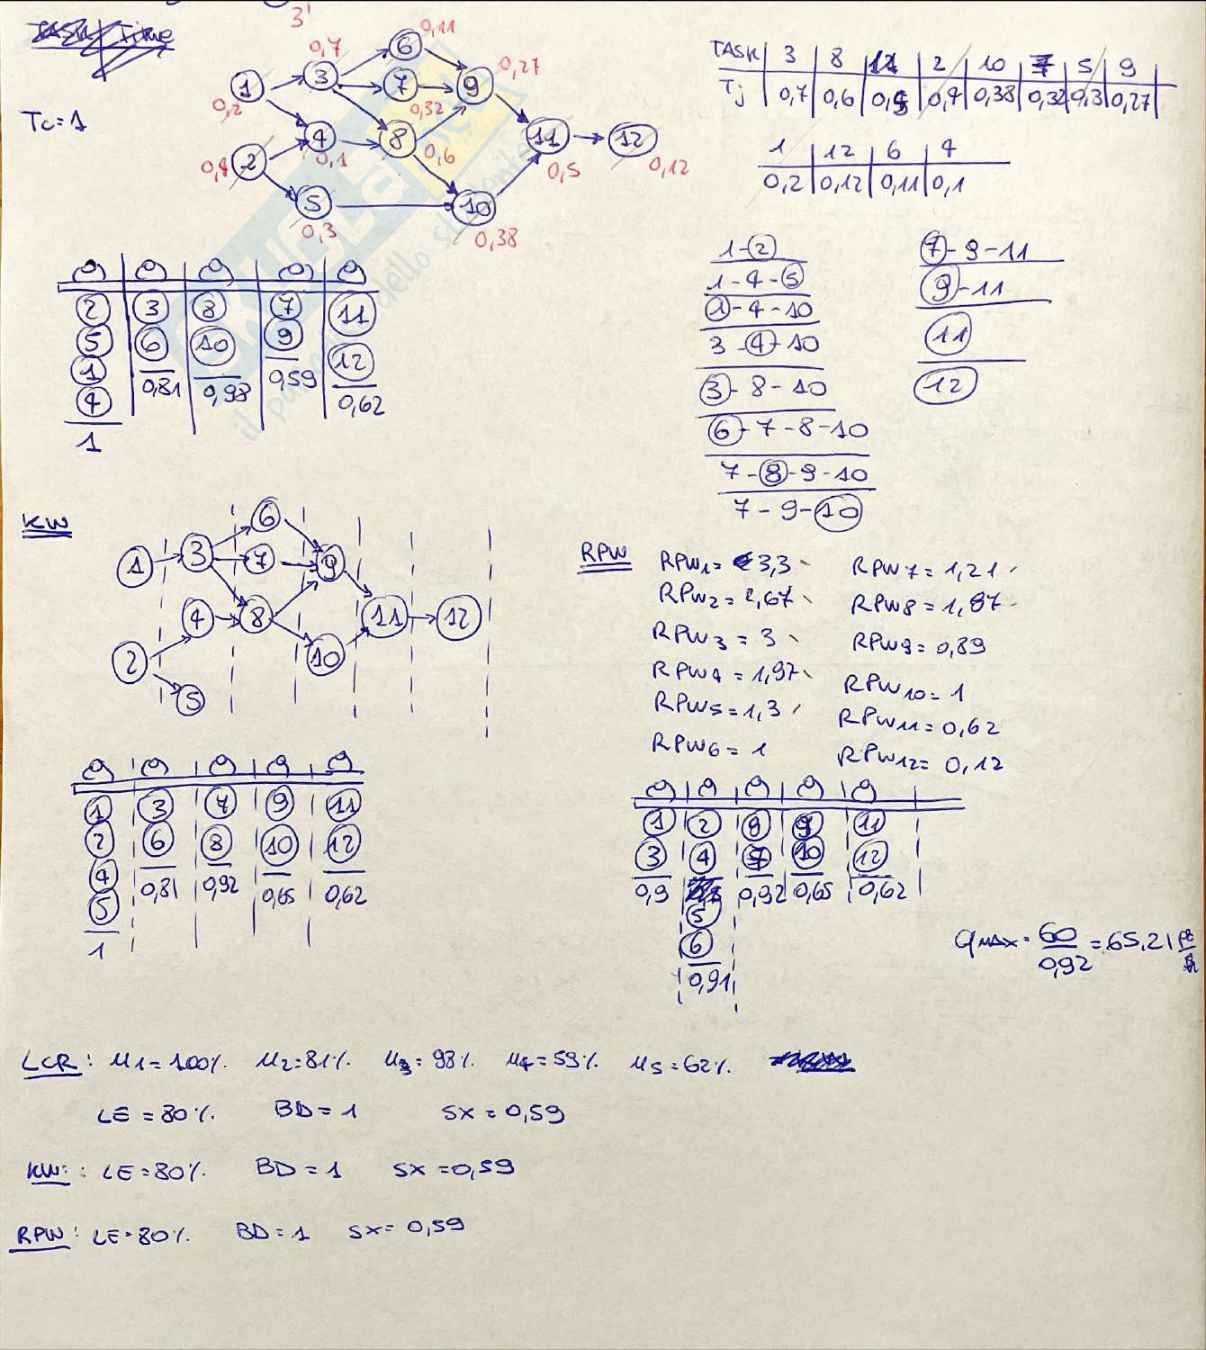 3'
Tc=1
1 3 6 7 9 4 8 11 12 2 5 10
0,2 0,7 0,11 0,32 0,27 0,1 0,6 0,5 0,12 0,4 0,3 0,38
TASK 3 8 11 2 10 7 5 9
Tj 0,7 0,6 0,5 0,4 0,38 0,32 0,3 0,27
1 12 6 4
0,2 0,12 0,11 0,1
2 3 8 7 11
5 6 10 9 12
1 0,81 0,98 0,59 0,62
4
1
1-2
1-4-5
1-4-10
3-4-10
3-8-10
6-7-8-10
7-8-9-10
7-9-10
7-9-11
9-11
11
12
KW
1 3 6 7 9 4 8 11 12 2 5 10
1 3 7 9 11
2 6 8 10 12
4 0,81 0,92 0,65 0,62
5
1
RPW
RPW1= 3,3
RPW2= 2,67
RPW3 = 3
RPW4 = 1,97
RPW5=1,3
RPW6= 1
RPW7= 1,21
RPW8= 1,87
RPW9= 0,89
RPW10= 1
RPW11= 0,62
RPW12= 0,12
1 2 8 9 11
3 4 7 10 12
0,9 0,92 0,65 0,62
5
6
0,91
qMAX = 60/0,92 = 65,21
LCR: µ1= 100% µ2=81% µ3= 98% µ4= 59% µ5=62%
LE = 80% BD= 1 SX = 0,59
KW: LE=80% BD= 1 SX =0,59
RPW: LE=80% BD=1 SX= 0,59